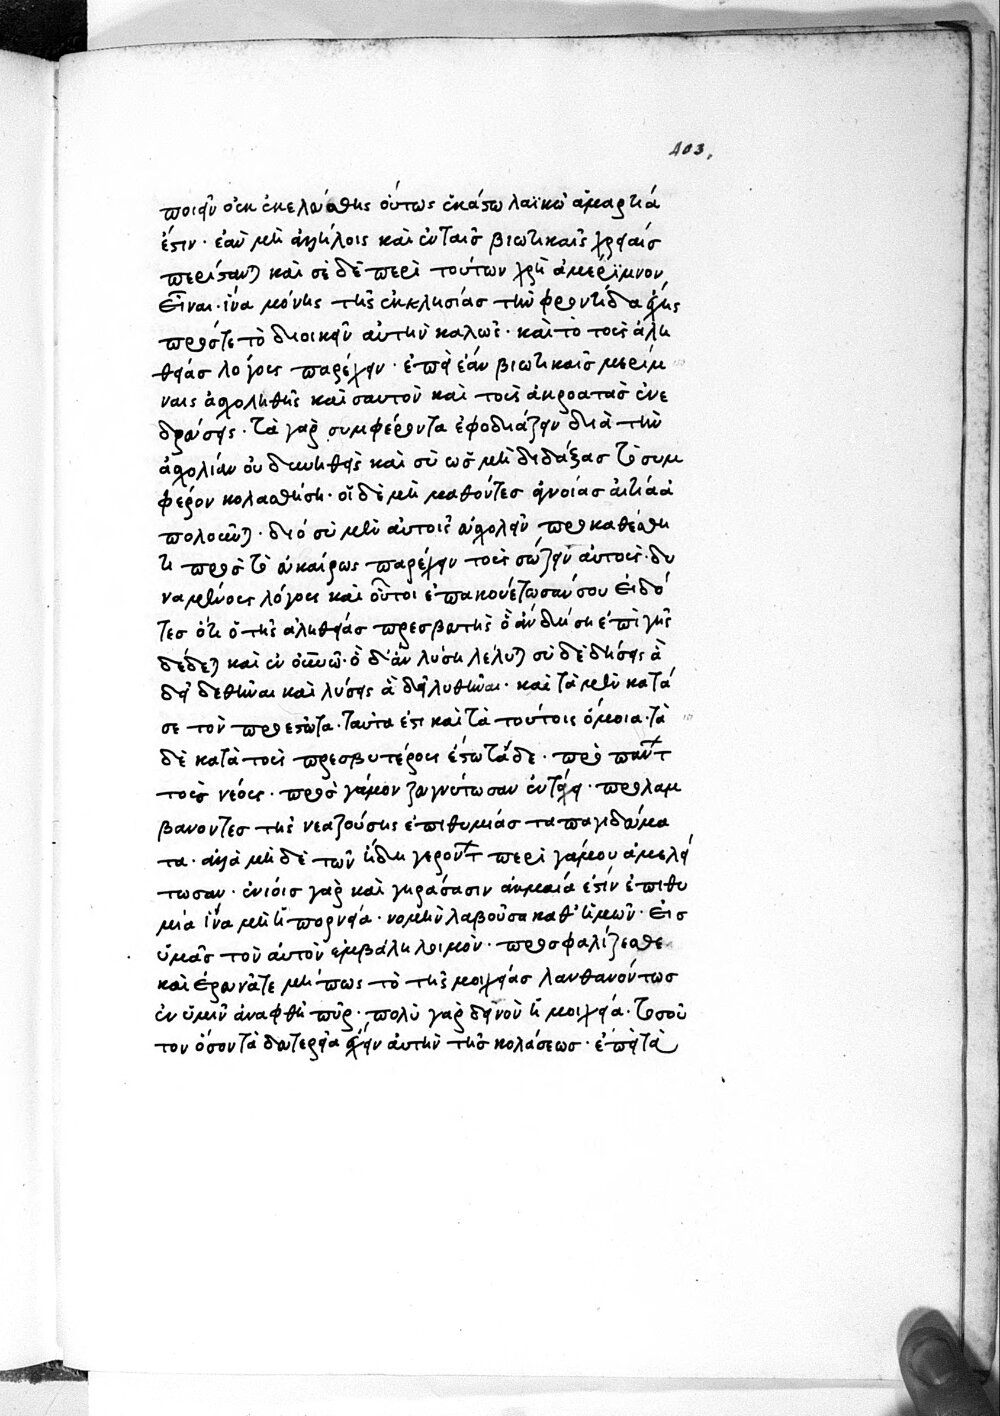 403.
ποιεῖν οὐκ ἐκελεύσθης οὕτως ἑκάστω λαϊκῶ ἁμαρτία
ἐστιν· ἐὰν μὴ ἀλλήλοις καὶ ἐν ταῖς βιωτικαῖς χρείαις
περίστανται καὶ σὲ δὲ περὶ τούτων χρὴ ἀμέριμνον
εἶναι· ἵνα μόνης τῆς ἐκκλησίας τὴν φροντίδα ἔχης
πρός τε τὸ διοικεῖν αὐτὴν καλῶς· καὶ τὸ τοὺς ἀλη
θείας λόγους παρέχειν· ἐπεὶ ἐὰν βιωτικαῖς μερίμ
ναις ἀσχοληθῆς καὶ σαυτὸν καὶ τοὺς ἀκροατὰς ἐνε
δρεύσεις· τὰ γὰρ συμφέροντα ἐφοδιάζειν διὰ τὴν
ἀσχολίαν οὐ δυνηθεὶς καὶ σὺ ὡς μὴ διδάξας τὸ συμ
φέρον κολασθήση· οἱ δὲ μὴ μαθόντες ἀγνοίας αἰτία ἀ
πολοῦνται· διὸ σὺ μὲν αὐτοῖς εὐσχολεῖν προκαθέσθη
τι πρὸς τὸ εὐκαίρως παρέχειν τοὺς σώζειν αὐτοὺς δυ
ναμένους λόγους καὶ οὗτοι ἐπακουέτωσάν σου εἰδό
τες ὅτι ὁ τῆς ἀληθείας πρεσβευτὴς ὃ ἂν δήση ἐπὶ γῆς
δέδεται καὶ ἐν οὐνῶ· ὃ δ' ἂν λύση λέλυται σὺ δὲ δήσεις ἃ
δεῖ δεθῆναι καὶ λύσεις ἃ δεῖ λυθῆναι· καὶ τὰ μὲν κατά
σε τὸν προεστῶτα· ταῦτα ἐστι καὶ τὰ τούτοις ὅμοια· τὰ
δὲ κατὰ τοὺς πρεσβυτέρους ἔστω τάδε· πρὸ πάντων
τοὺς νέους· πρὸς γάμον ζευγνύτωσαν ἐν τάχει· προλαμ
βάνοντες τῆς νεαζούσης ἐπιθυμίας τὰ παγιδεύμα
τα· ἀλλὰ μὴ δὲ τῶν ἤδη γερόντων περὶ γάμου ἀμελεί
τωσαν· ἐνίοις γὰρ καὶ γηράσασιν ἀκμαία ἐστὶν ἐπιθυ
μία ἵνα μὴ ἡ πορνεία· νομὴν λαβοῦσα καθ' ἡμῶν· εἰς
ὑμᾶς τὸν αὐτὸν ἐμβάλη λοιμὸν· προσφαλίζεσθε
καὶ ἐρευνᾶτε μήπως τὸ τῆς μοιχείας λανθανόντως
ἐν ὑμῖν ἀναφθῆ πῦρ· πολὺ γὰρ δεινὸν ἡ μοιχεία· τοσοῦ
τον ὅσον τὰ δευτερεῖα ἔχειν αὐτὴν τῆς κολάσεως· ἐπεὶ τὰ